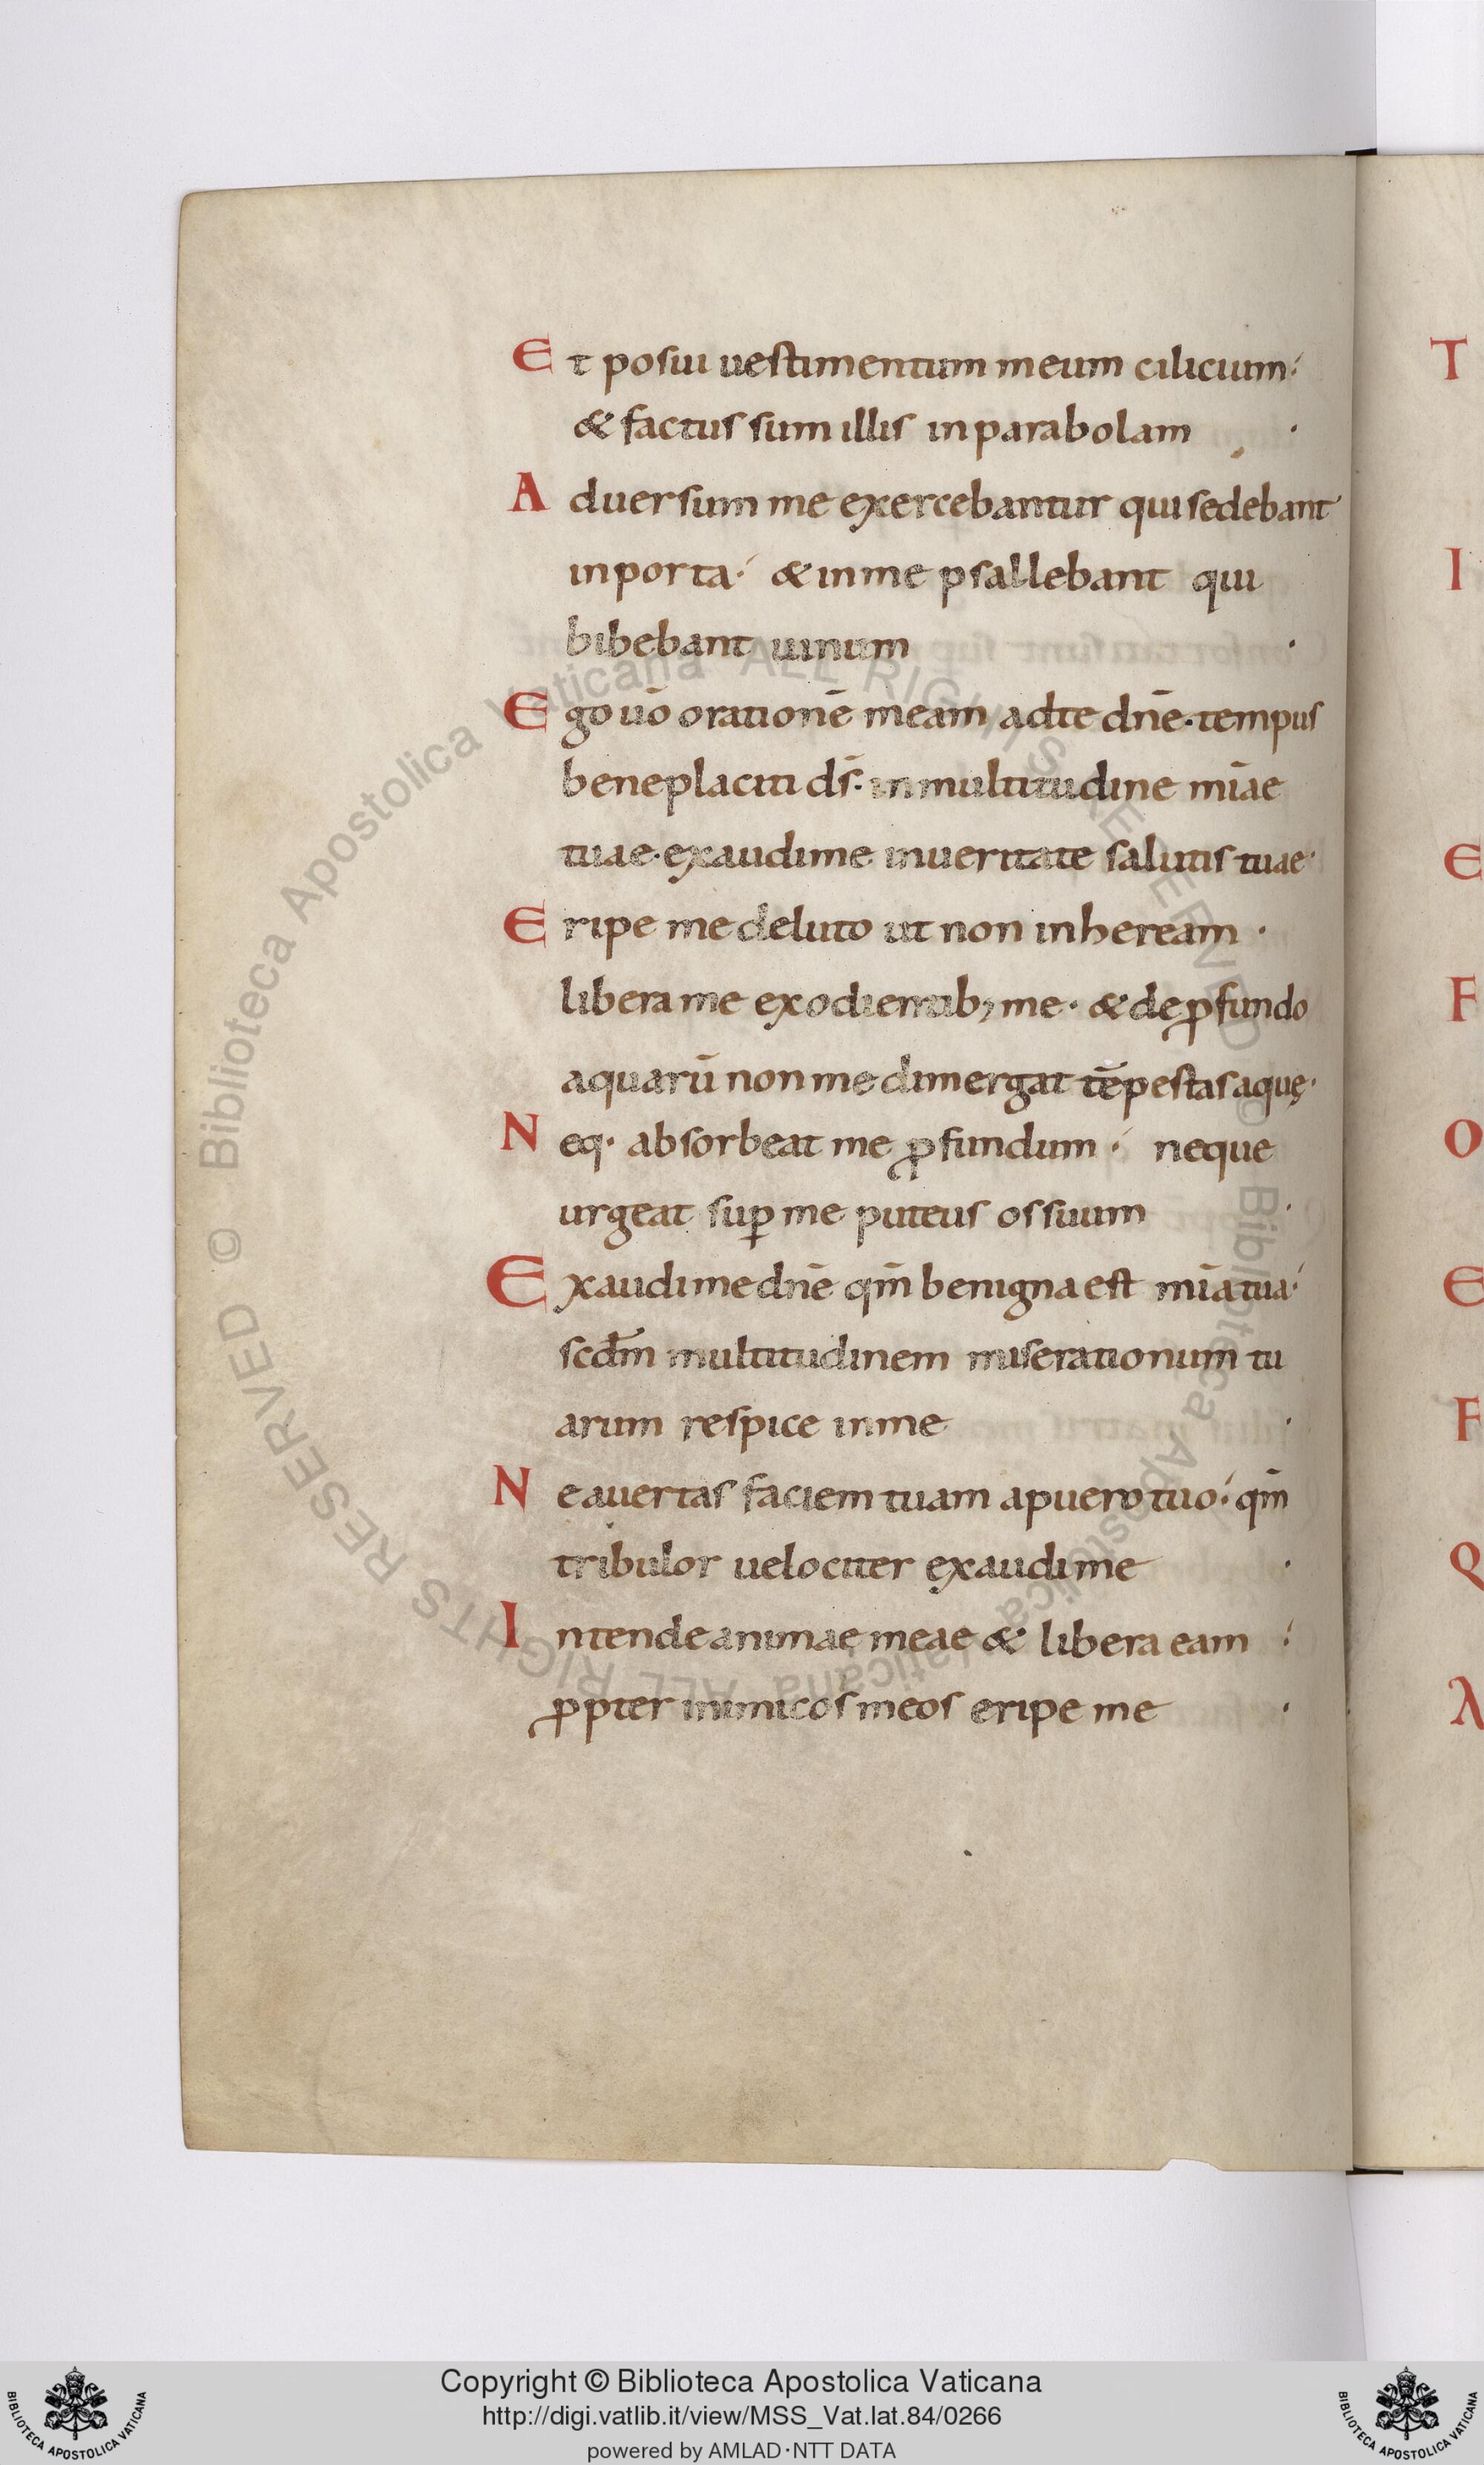 Et posui uestimentum meum cilicium·
& factus sum illis inparabolam ·
Aduersum me exercebantur qui sedebant
inporta· & inme psallebant qui
bibebant uinum ·
Ego uō orationē meam adte dnē· tempus
beneplaciti ds̄· inmultitudine mīae
tuae· exaudime inueritate salutis tuae·
Eripe me deluto ut non inheream ·
libera me exodientib; me· & deꝓfundo
aquarū non me dimergat tēpestas aquę·
Neq· absorbeat me ꝓfundum · neque
urgeat suꝑ me puteus os suum ·
Exaudi me dnē qm̄ benigna est mīa tua·
scdm̄ multitudinem miserationum tu
arum respice inme ·
Ne auertas faciem tuam apuero tuo· qm̄
tribulor uelociter exaudi me ·
Intende animae meae & libera eam ·
ꝓpter inimicos meos eripe me ·
T
I
E
F
O
E
F
Q
A
© Biblioteca Apostolica Vaticana ALL RIGHTS RESERVED © Biblioteca Apostolica Vaticana ALL RIGHTS RESERVED
Copyright © Biblioteca Apostolica Vaticana
http://digi.vatlib.it/view/MSS_Vat.lat.84/0266
powered by AMLAD·NTT DATA
BIBLIOTECA APOSTOLICA VATICANA
BIBLIOTECA APOSTOLICA VATICANA